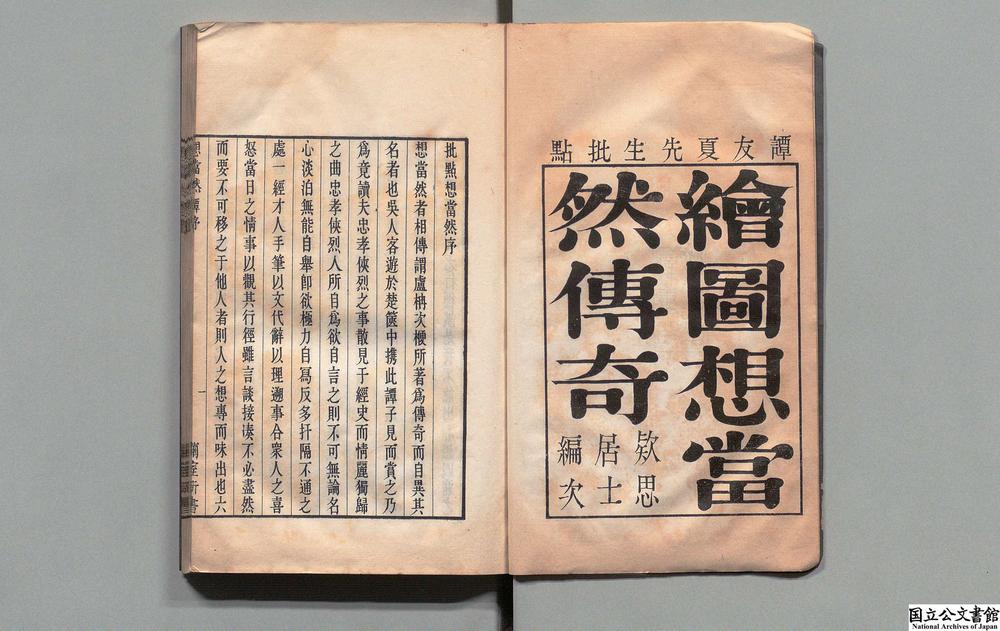 譚友夏先生批點
繪圖想當
然傳奇
欵思
居士
編次
批點想當然序
想當然者相傳謂盧柟次楩所著為傳奇而自異其
名者也吳人客遊於楚篋中携此譚子見而賞之乃
為竟讀夫忠孝俠烈之事散見于經史而情麗獨歸
之曲忠孝俠烈人所自為欲自言之則不可無論名
心淡泊無能自舉卽欲極力自寫反多扞隔不通之
處一經才人手筆以文代辭以理遡事合衆人之喜
怒當日之情事以觀其行徑雖言談接凑不必盡然
而要不可移之于他人者則人之想專而味出也六
想當然 序
一
国立公文書館
National Archives of Japan